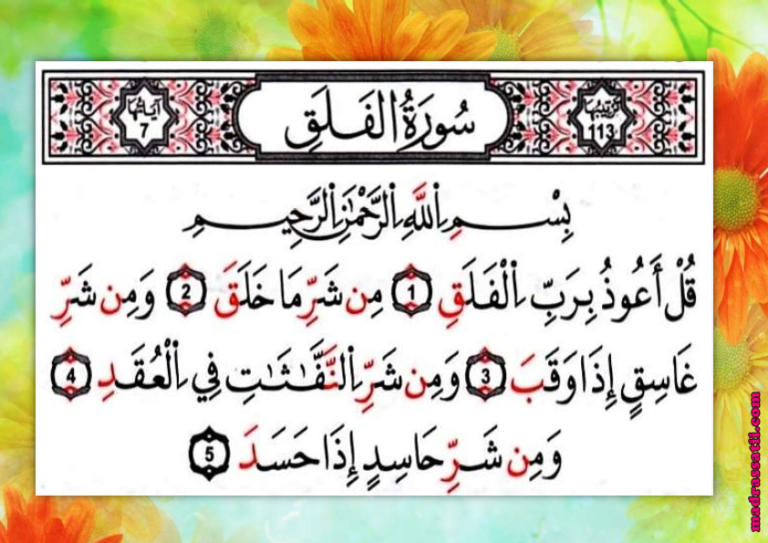 ترتيبها 113
سُورَةُ الفَلَقِ
آياتها 7
بِسْمِ اِ۬للَّهِ اِ۬لرَّحْمَٰنِ اِ۬لرَّحِيمِ
قُلْ أَعُوذُ بِرَبِّ اِ۬لْفَلَقِ 1 مِن شَرِّ مَا خَلَقَ 2 وَمِن شَرِّ
غَاسِقٍ إِذَا وَقَبَ 3 وَمِن شَرِّ اِ۬لنَّفَّٰثَٰتِ فِي اِ۬لْعُقَدِ 4
وَمِن شَرِّ حَاسِدٍ إِذَا حَسَدَ 5
madrassatii.com